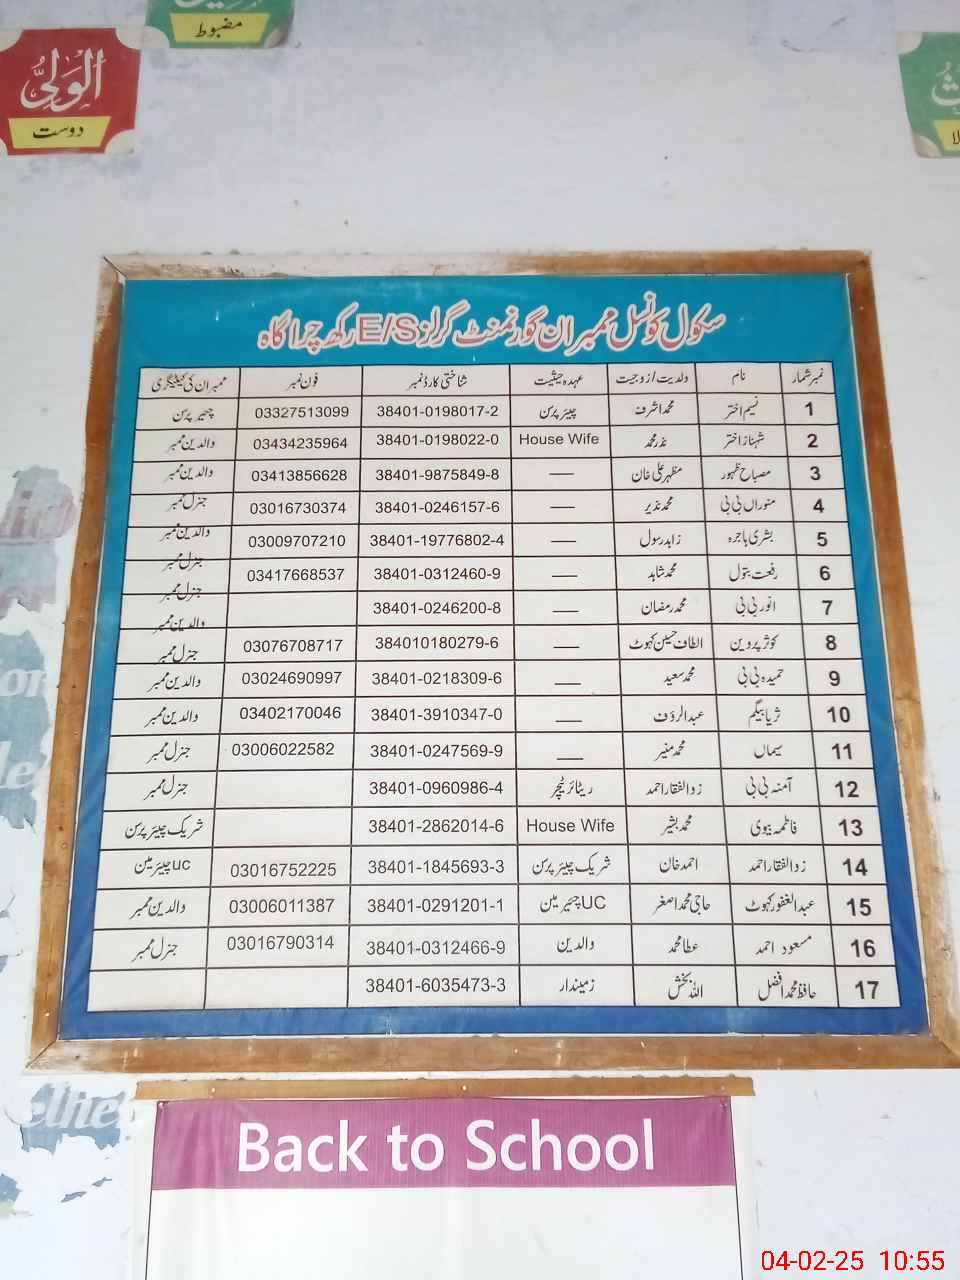 مضبوط
اَلْوَلِیُّ
دوست
سکول کونسل ممبران گورنمنٹ گرلز E/S رکھ چراگاہ
نمبر شمار نام ولدیت/زوجیت عہدہ حیثیت شناختی کارڈ نمبر فون نمبر ممبران کی کیٹیگری
1 نسیم اختر محمد اشرف چیئر پرسن 38401-0198017-2 03327513099 چئیر پرسن
2 شہناز اختر نذر محمد House Wife 38401-0198022-0 03434235964 والدین ممبر
3 مصباح ظہور مظہر علی خان — 38401-9875849-8 03413856628 والدین ممبر
4 منوراں بی بی محمد نذیر — 38401-0246157-6 03016730374 جنرل ممبر
5 بشری ہاجرہ زاہد رسول — 38401-19776802-4 03009707210 والدین ممبر
6 رفعت بتول محمد شاہد — 38401-0312460-9 03417668537 جنرل ممبر
7 انور بی بی محمد رمضان — 38401-0246200-8 جنرل ممبر
والدین ممبر
8 کوثر پروین الطاف حسین کہوٹ — 384010180279-6 03076708717 جنرل ممبر
9 حمیدہ بی بی محمد سعید — 38401-0218309-6 03024690997 والدین ممبر
10 ثریا بیگم عبدالرؤف — 38401-3910347-0 03402170046 والدین ممبر
11 سیماں محمد منیر — 38401-0247569-9 03006022582 جنرل ممبر
12 آمنہ بی بی ذوالفقار احمد ریٹائر ٹیچر 38401-0960986-4 جنرل ممبر
13 فاطمہ بیوی محمد بشیر House Wife 38401-2862014-6 شریک چیئر پرسن
14 زوالفقار احمد احمد خان شریک چیئر پرسن 38401-1845693-3 03016752225 ucچیئر مین
15 عبدالغفور کہوٹ حاجی محمد اصغر UCچئیر مین 38401-0291201-1 03006011387 والدین ممبر
16 مسعود احمد عطا محمد والدین 38401-0312466-9 03016790314 جنرل ممبر
17 حافظ محمد افضل اللہ بخش زمیندار 38401-6035473-3
Back to School
04-02-25 10:55